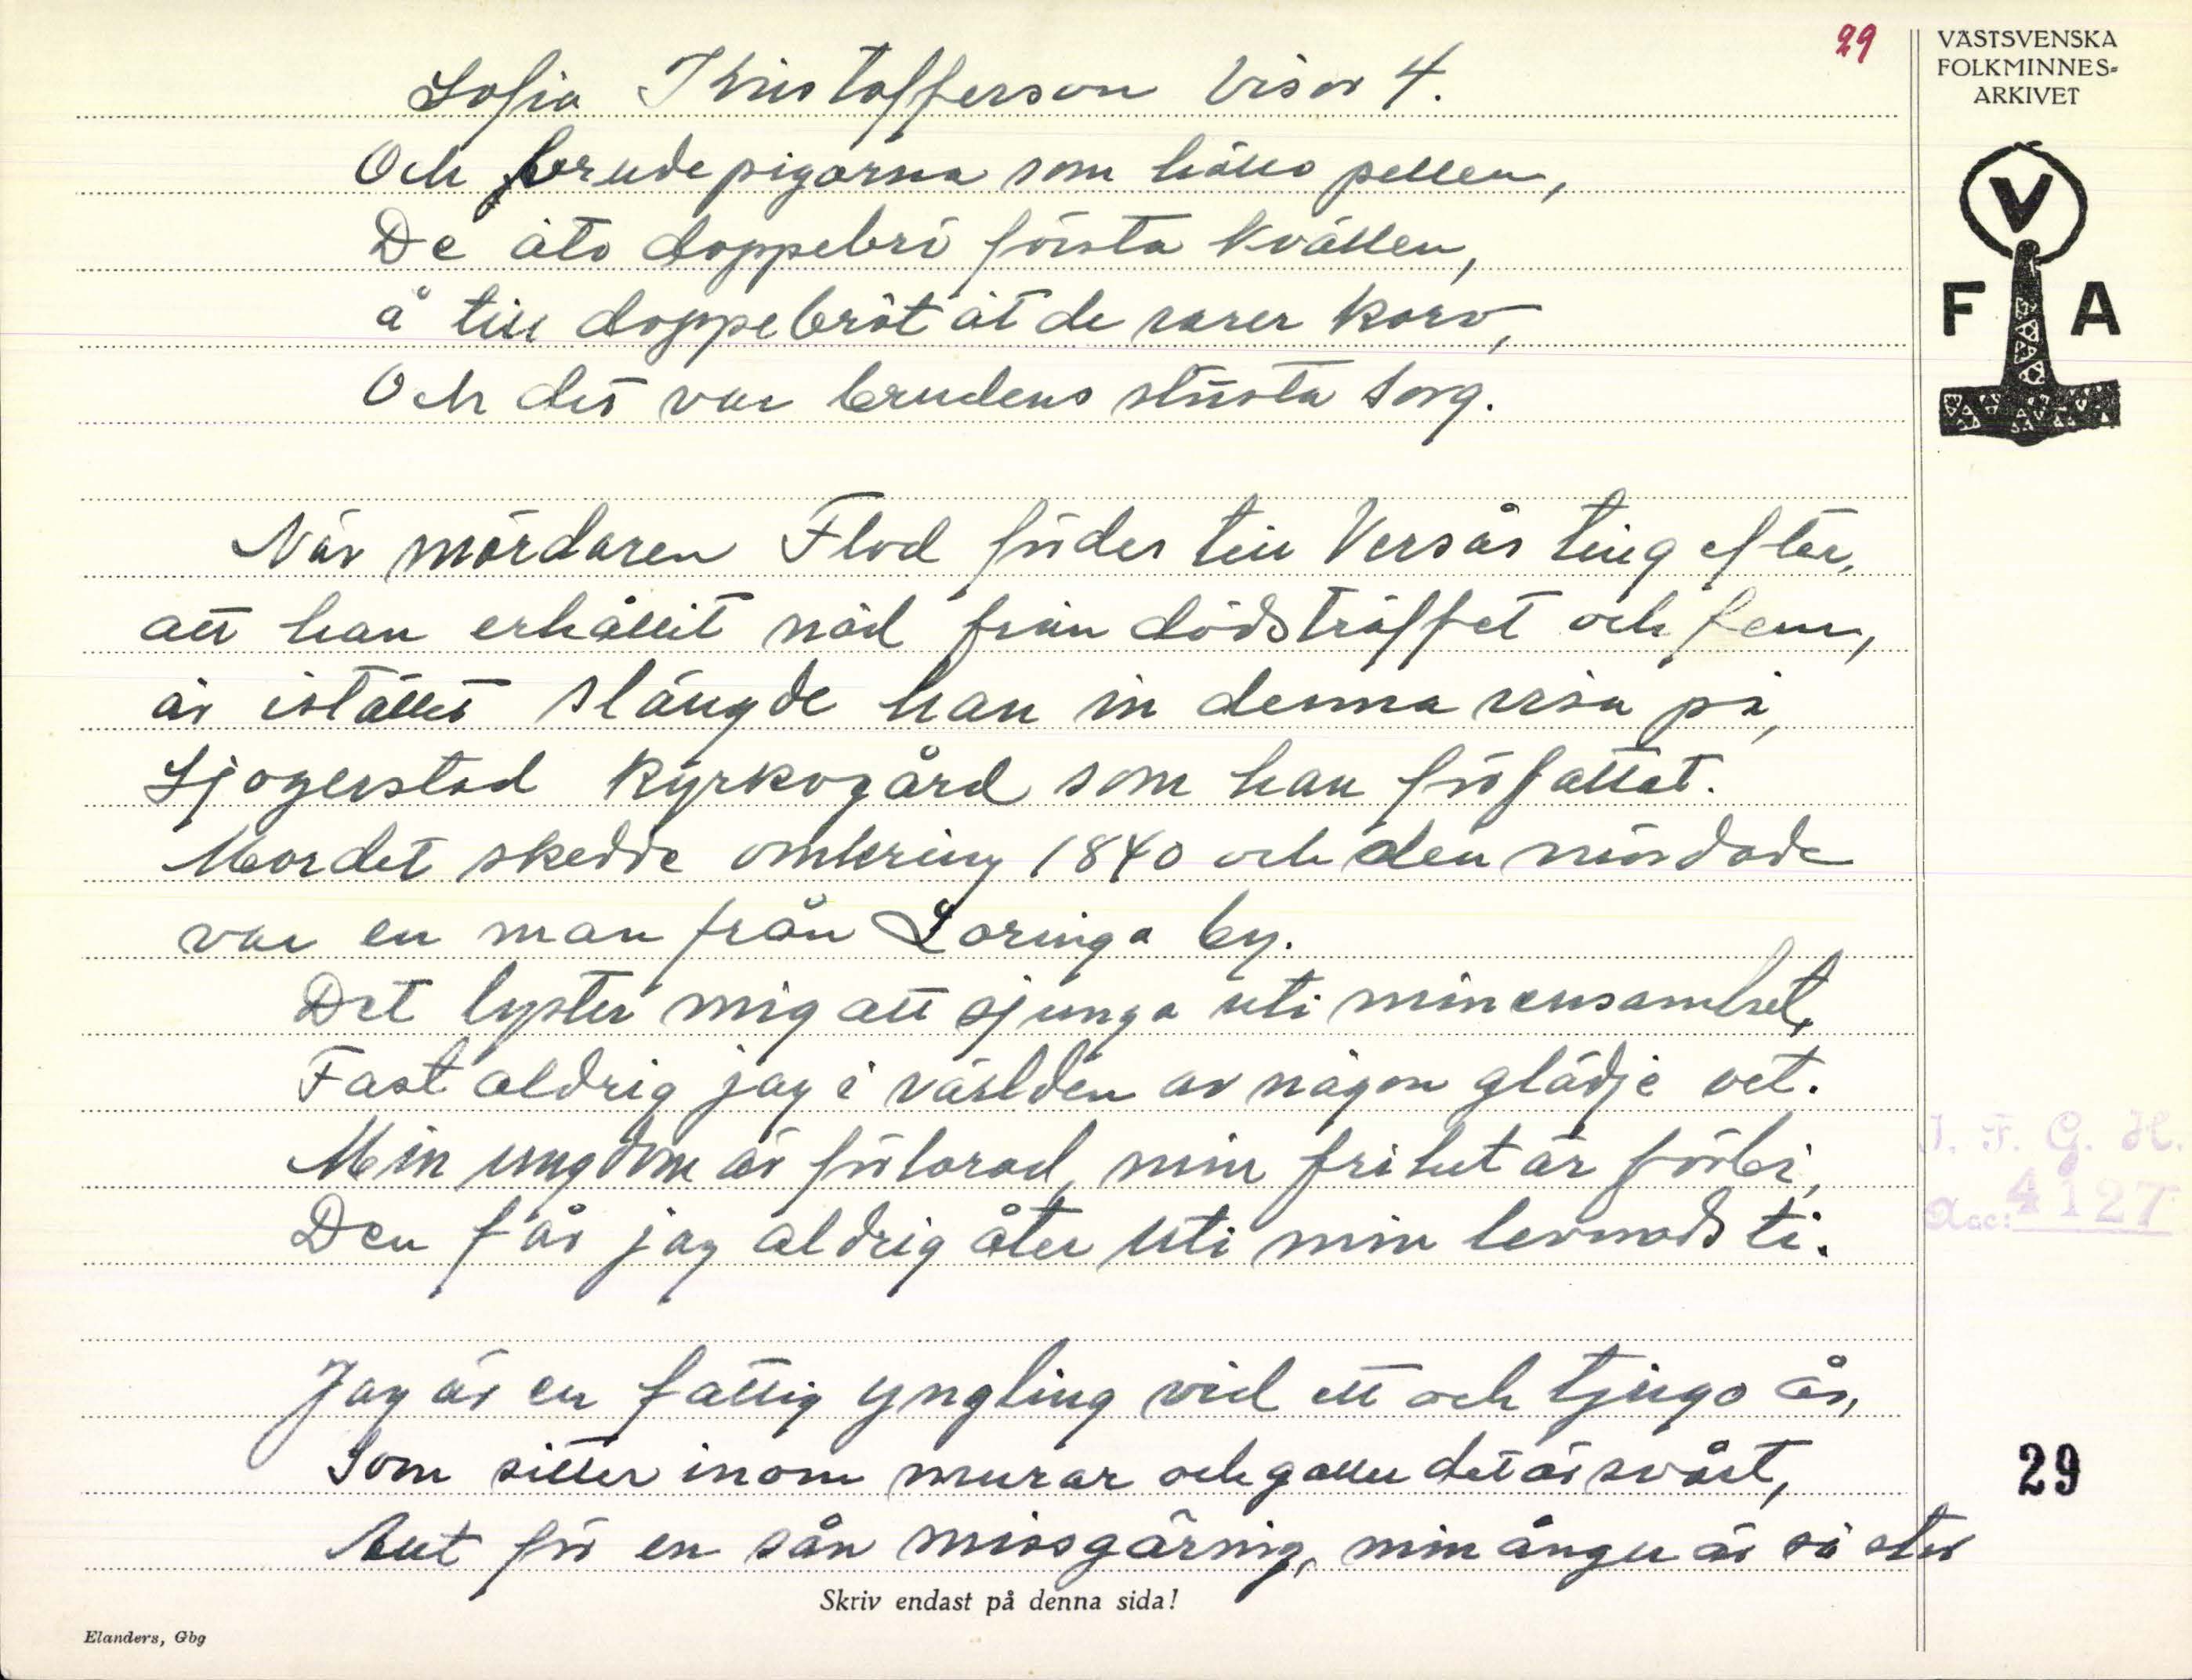 29
VÄSTSVENSKA
FOLKMINNES-
ARKIVET
V
F A
Sofia Kristofferson Visor 4.
Och brudepigorna som hållo pellen,
De åto doppebrö första kvällen,
å till doppebröt åt de rarer korv,
Och det var brudens sturta sorg.
När mördaren Flod födes till Versås ting efter,
att han erhållit nåd från dödstraffet och fem,
år istället slängde han in denna visa på,
Sjogerstad kyrkogård som han författat.
Mordet skedde omkring 1840 och den mördade
var en man från Loringa by.
Det lyster mig att sjunga uti min ensamhet,
Fast aldrig jag i världen av någon glädje vet.
Min ungdom är förlorad, min frihet är förbi,
Den får jag aldrig åter uti min levnads ti.
I. F. G. H.
Acc: 4127
Jag är en fattig yngling vid ett och tjugo år,
Som sitter inom murar och galler det är svårt,
Aut för en sån missgärnig, min ånger är så stor
29
Skriv endast på denna sida!
Elanders, Gbg